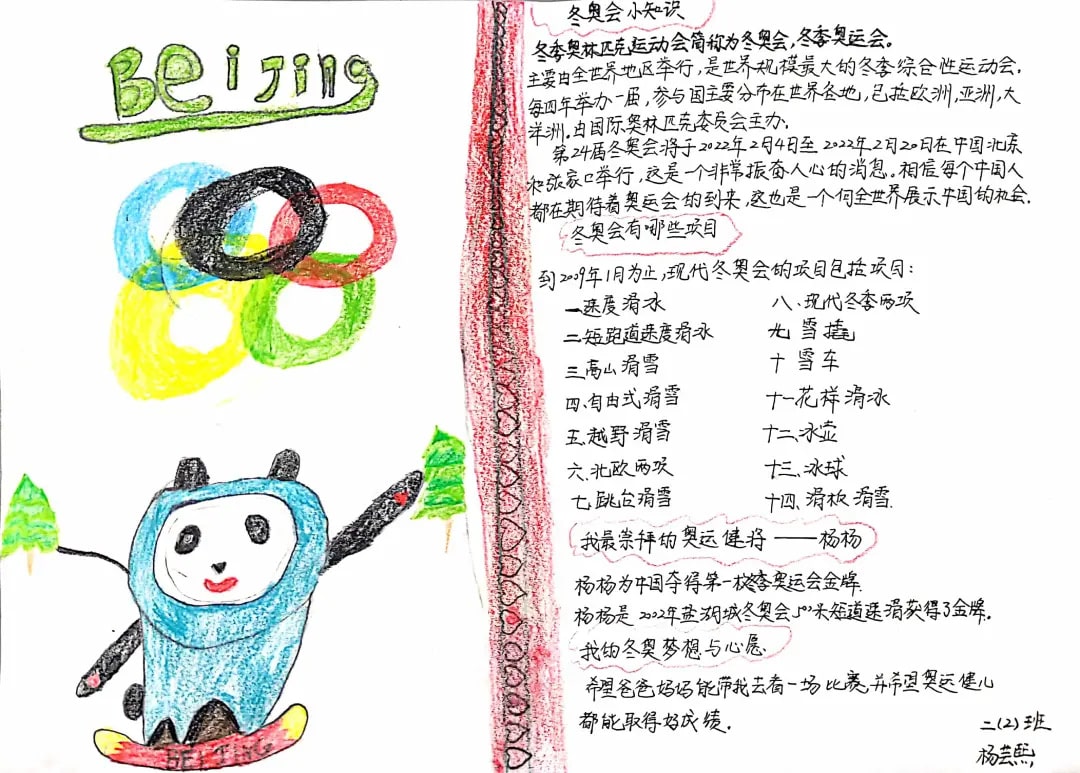 BeiJing
BEIJING
冬奥会小知识
冬季奥林匹克运动会简称为冬奥会，冬季奥运会。
主要由全世界地区举行，是世界规模最大的冬季综合性运动会，
每四年举办一届，参与国主要分布在世界各地，已拉欧洲，亚洲，大
洋洲。由国际奥林匹克委员会主办。
第24届冬奥会将于2022年2月4日至2022年2月20日在中国北京
和张家口举行，这是一个非常振奋人心的消息。相信每个中国人
都在期待着奥运会的到来，这也是一个向全世界展示中国的机会。
冬奥会有哪些项目
到2009年1月为止，现代冬奥会的项目包括项目：
一速度滑冰
二短跑道速度滑冰
三高山滑雪
四、自由式滑雪
五、越野滑雪
六、北欧两项
七、跳台滑雪
八、现代冬季两项
九 雪撬
十 雪车
十一花样滑冰
十二、冰壶
十三、冰球
十四、滑板滑雪
我最崇拜的奥运健将——杨杨
杨杨为中国夺得第一枚冬季奥运会金牌.
杨杨是2002年盐湖城冬奥会500米短道速滑获得了金牌。
我的冬奥梦想与心愿
希望爸爸妈妈能带我去看一场比赛，并希望奥运健儿
都能取得好成绩。
二(2)班
杨芸熙